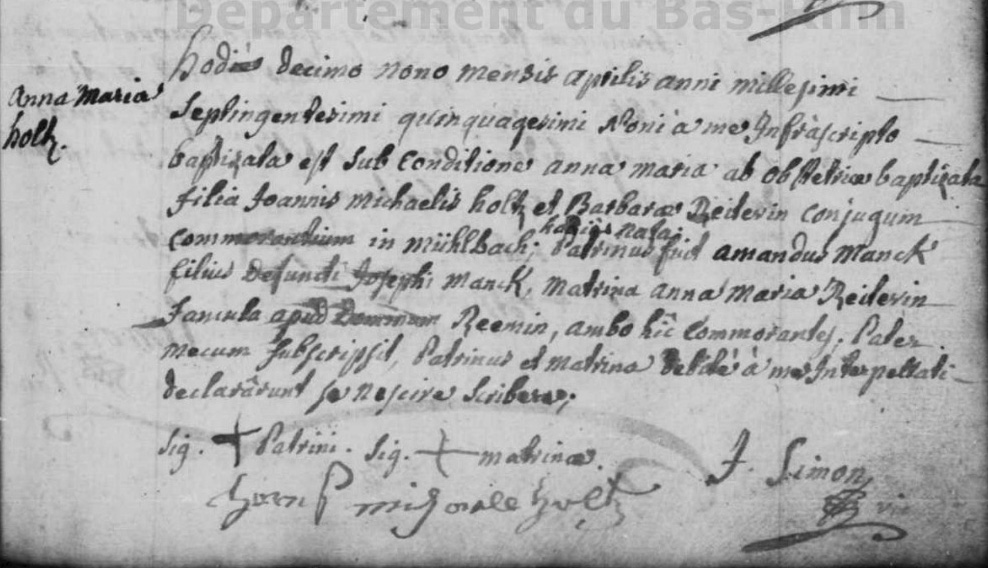 Département du Bas-Rhin
Anna Maria
holtz.
hodie decimo nono mensis aprilis anni millesimi
Septingentesimi quinquagesimi Noni a me Infrascripto
baptizata est sub Conditione anna maria ab obstetrice baptizata
filia Joannis michaelis holtz et Barbaræ Reiterin conjugum
hodie nata;
commorantium in mühlbach; Patrinus fuit amandus Manck
filius defuncti Josephi manck, matrina anna maria Reiterin
famula apud Dominum Reemin, ambo hîc Commorantes, Pater
mecum subscripsit, Patrinus et matrina à me Interpellati
declarârunt se nescire scribere;
sig. + Patrini. sig. + matrinæ.
J. Simon
holtz